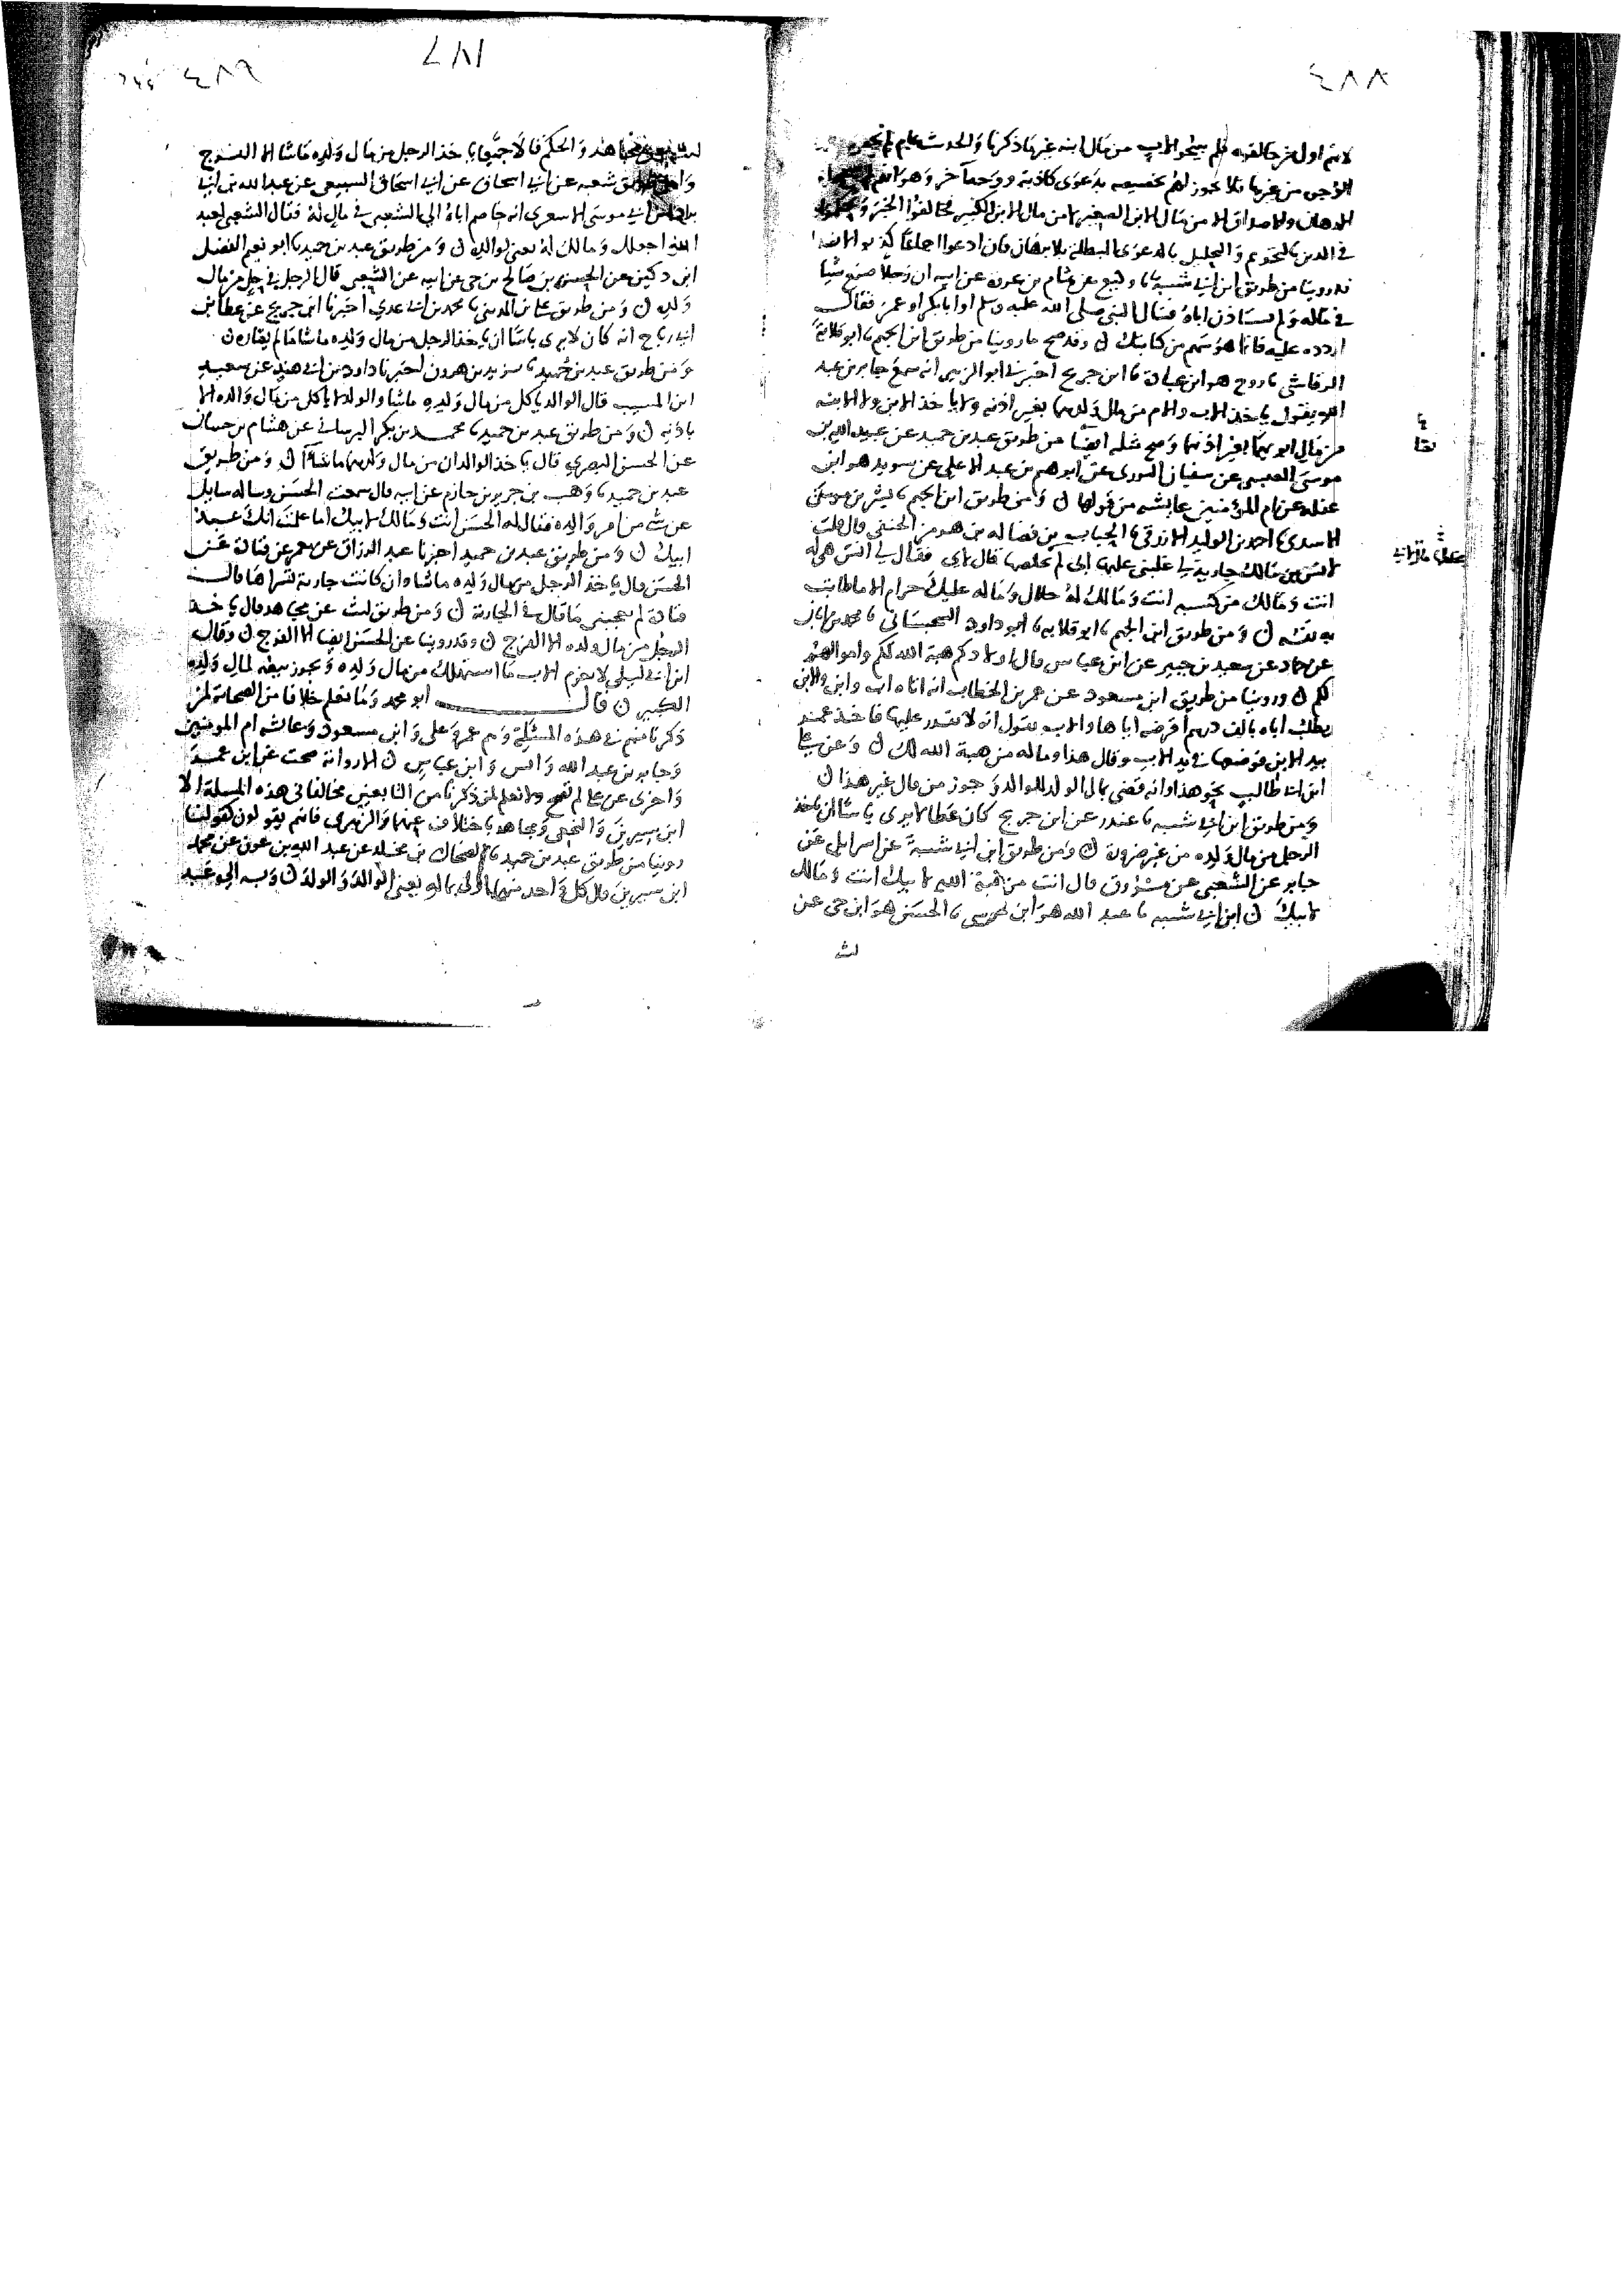 ٤٨٨
لانهم اول من خالفه فلم يبيحوا الاب من مال ابنه غير ما ذكرنا والحديث عام لم يخص
في الدين بالتحريم والتحليل بالدعوى المبطلة بلا برهان فان ادعوا اجماعا
قد روينا من طريق ابن ابي شيبة نا وكيع عن هشام بن عروة عن ابيه ان رجلا صنع شيا
في ماله ولم يستاذن اباه فسال النبي صلى الله عليه وسلم او ابا بكر او عمر فقال
اردده عليه فانما هو سهم من كنانتك ن وقد صح ما روينا من طريق ابن الجهم نا ابو قلابة
الرقاشي نا روح هو ابن عبادة نا ابن جريج اخبرني ابو الزبير انه سمع جابر بن عبد
الله يقول ياخذ الاب والام من مال ولدهما بغير اذنه ولا ياخذ الابن ولا الابنة
من مال ابويهما بغير اذنهما وصح مثله ايضا من طريق عبد بن حميد عن عبيد الله بن
موسى العبسي عن سفيان الثوري عن ابرهيم بن عبد الاعلى عن سويد هو ابن
غفلة عن ام المؤمنين عايشة من قولها ن ومن طريق ابن الجهم نا بشر بن موسى
الاسدي نا احمد بن الوليد الازرقي نا الحباب بن فضالة بن هرمز الحنفي قال قلت
لانس بن مالك جارية لي غلبني عليها ابي لم يخلصها قال لي فقال لي انس هي له
انت ومالك من كسبه انت ومالك له حلال وماله عليك حرام الا ما طابت
به نفسه ن ومن طريق ابن الجهم نا ابو قلابة نا ابو داود السجستاني نا محمد بن ابان
عن حماد عن سعيد بن جبير عن ابن عباس قال اولادكم هبة الله لكم واموالهم
لكم ن وروينا من طريق ابن مسعود عن عمر بن الخطاب انه اتاه اب وابن والابن
يطلب اباه بالف درهم اقرضه اياها والاب يقول انه لا يقدر عليها فاخذ عمر
بيد الابن فوضعها في يد الاب وقال هذا وماله من هبة الله لك ن وعن علي
ابن ابي طالب نحو هذا وانه قضى بمال الولد للوالد وجوز من مال غير هذا ن
ومن طريق ابن ابي شيبة نا غندر عن ابن جريج كان عطا لا يرى باسا ان ياخذ
الرجل من مال ولده من غير ضرورة ن ومن طريق ابن ابي شيبة عن اسرايل عن
جابر عن الشعبي عن مسروق قال انت من هبة الله لابيك انت ومالك
لابيك ن ابن ابي شيبة نا عبد الله هو ابن موسى نا الحسن هو ابن حي عن
ليث
٤٨٩
ليث عن مجاهد والحكم قالا جميعا ياخذ الرجل من مال ولده ما شا الا الفرج
ومن طريق شعبة عن ابي اسحاق عن ابي اسحاق السبيعي عن عبد الله بن ابي
بردة بن ابي موسى الاشعري انه خاصم اباه الى الشعبي في مال له فقال الشعبي لعبد
الله اجعلك ومالك له يعني لوالده ن ومن طريق عبد بن حميد نا ابو نعيم الفضل
ابن دكين عن الحسن بن صالح بن حي عن ابيه عن الشعبي قال الرجل في حل من مال
ولده ن ومن طريق علي بن المديني نا محمد بن ابي عدي اخبرنا ابن جريج عن عطا بن
ابي رباح انه كان لا يرى باسا ان ياخذ الرجل من مال ولده ما شا ما لم يضاره ن
ومن طريق عبد بن حميد نا يزيد بن هرون اخبرنا داود بن ابي هند عن سعيد
ابن المسيب قال الوالد ياكل من مال ولده ما شا والولد لا ياكل من مال والده الا
باذنه ن ومن طريق عبد بن حميد نا محمد بن بكر البرساني عن هشام بن حسان
عن الحسن البصري قال ياخذ الوالدان من مال ولدهما ما شاآ ن ومن طريق
عبد بن حميد نا وهب بن جرير بن حازم عن ابيه قال سمعت الحسن وساله سايل
عن شي من امر والده فقال له الحسن انت ومالك لابيك اما علمت انك عبد
ابيك ن ومن طريق عبد بن حميد اخبرنا عبد الرزاق عن معمر عن قتادة عن
الحسن قال ياخذ الرجل من مال ولده ما شا وان كانت جارية تسراها قال
قتادة لم يعجبني ما قال في الجارية ن ومن طريق ليث عن مجاهد قال ياخذ
الرجل من مال ولده الا الفرج ن وقد روينا عن الحسن ايضا الا الفرج ن وقال
ابن ابي ليلى لا يغرم الاب ما استهلك من مال ولده ويجوز بيعه لمال ولده
الكبير ن قال ابو محمد وما نعلم خلافا من الصحابة لمن
ذكرنا منهم في هذه المسئلة وهم عمر وعلي وابن مسعود وعايشة ام المومنين
وجابر بن عبد الله وانس وابن عباس ن الا رواية صحت عن ابن عمر
واخرى عن علي لم تصح ولا نعلم لمن ذكرنا من التابعين مخالفا في هذه المسلة الا
ابن سيرين والنخعي ومجاهد باختلاف عنهما والزهري فانهم يقولون كقولنا
روينا من طريق عبد بن حميد نا الضحاك بن مخلد عن عبد الله بن عون عن محمد
ابن سيرين قال كل واحد منهما اولى بماله يعني الوالد والولد ن وبه الى عبد